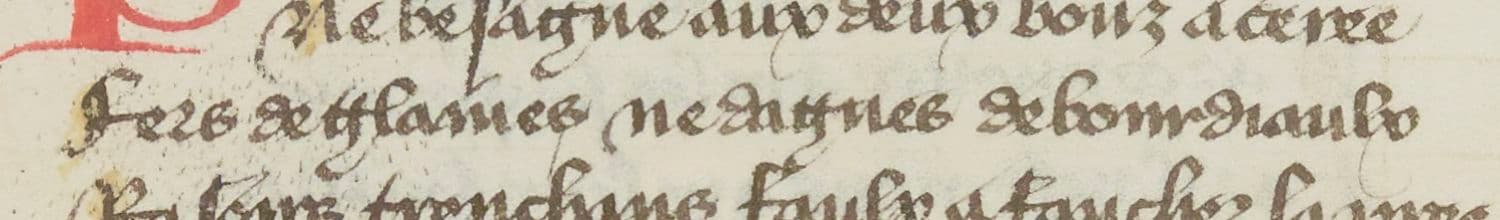 Ne besague aux deux bouz aceree
Fers de glaiues ne dagues de bourdiaulx
Rasours trenchans faulx a faucher